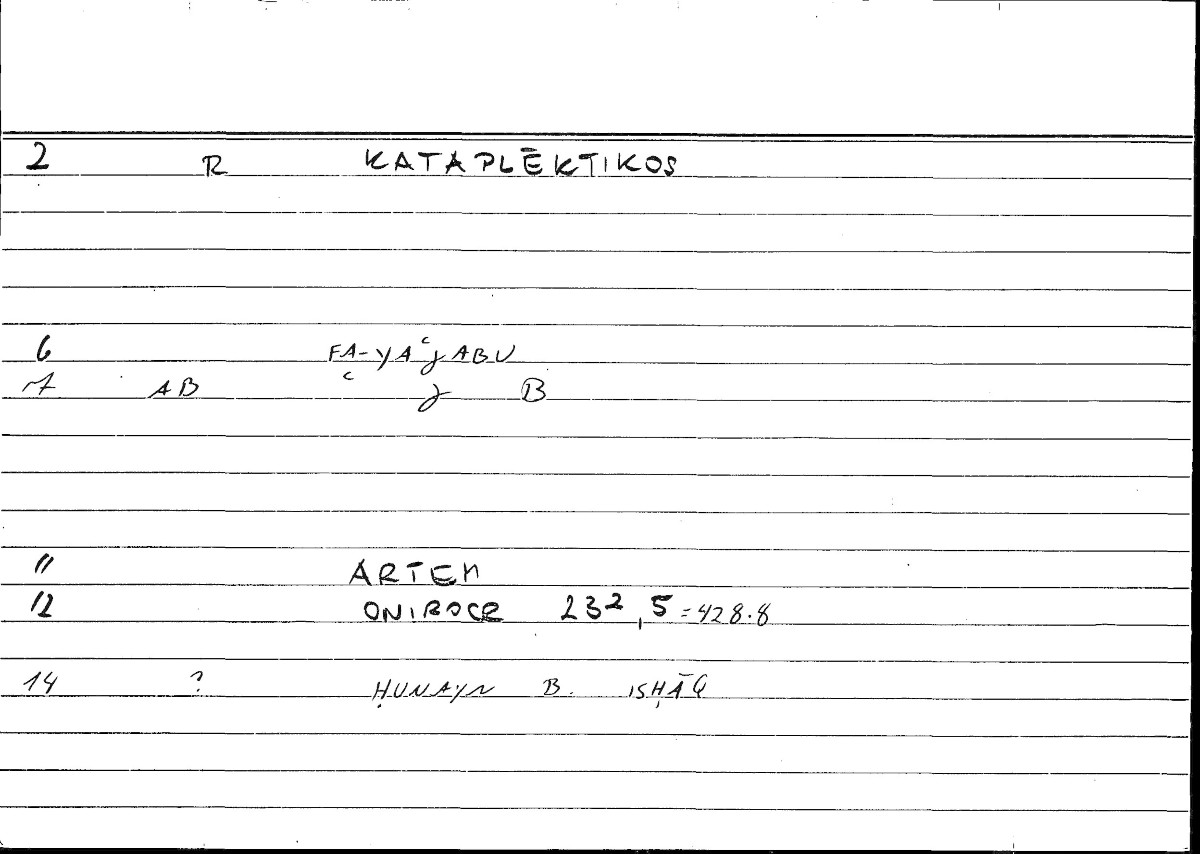 2 R KATAPLĒKTIKOS
6 FA-YAʿJABU
7 AB ʿ J B
11 ARTEM
12 ONIROCR 232,5=428.8
14 ? ḤUNAYN B. ISḤĀQ